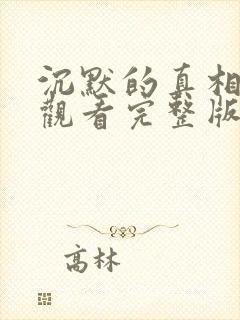 沉默的真相
觀看完整版
高林